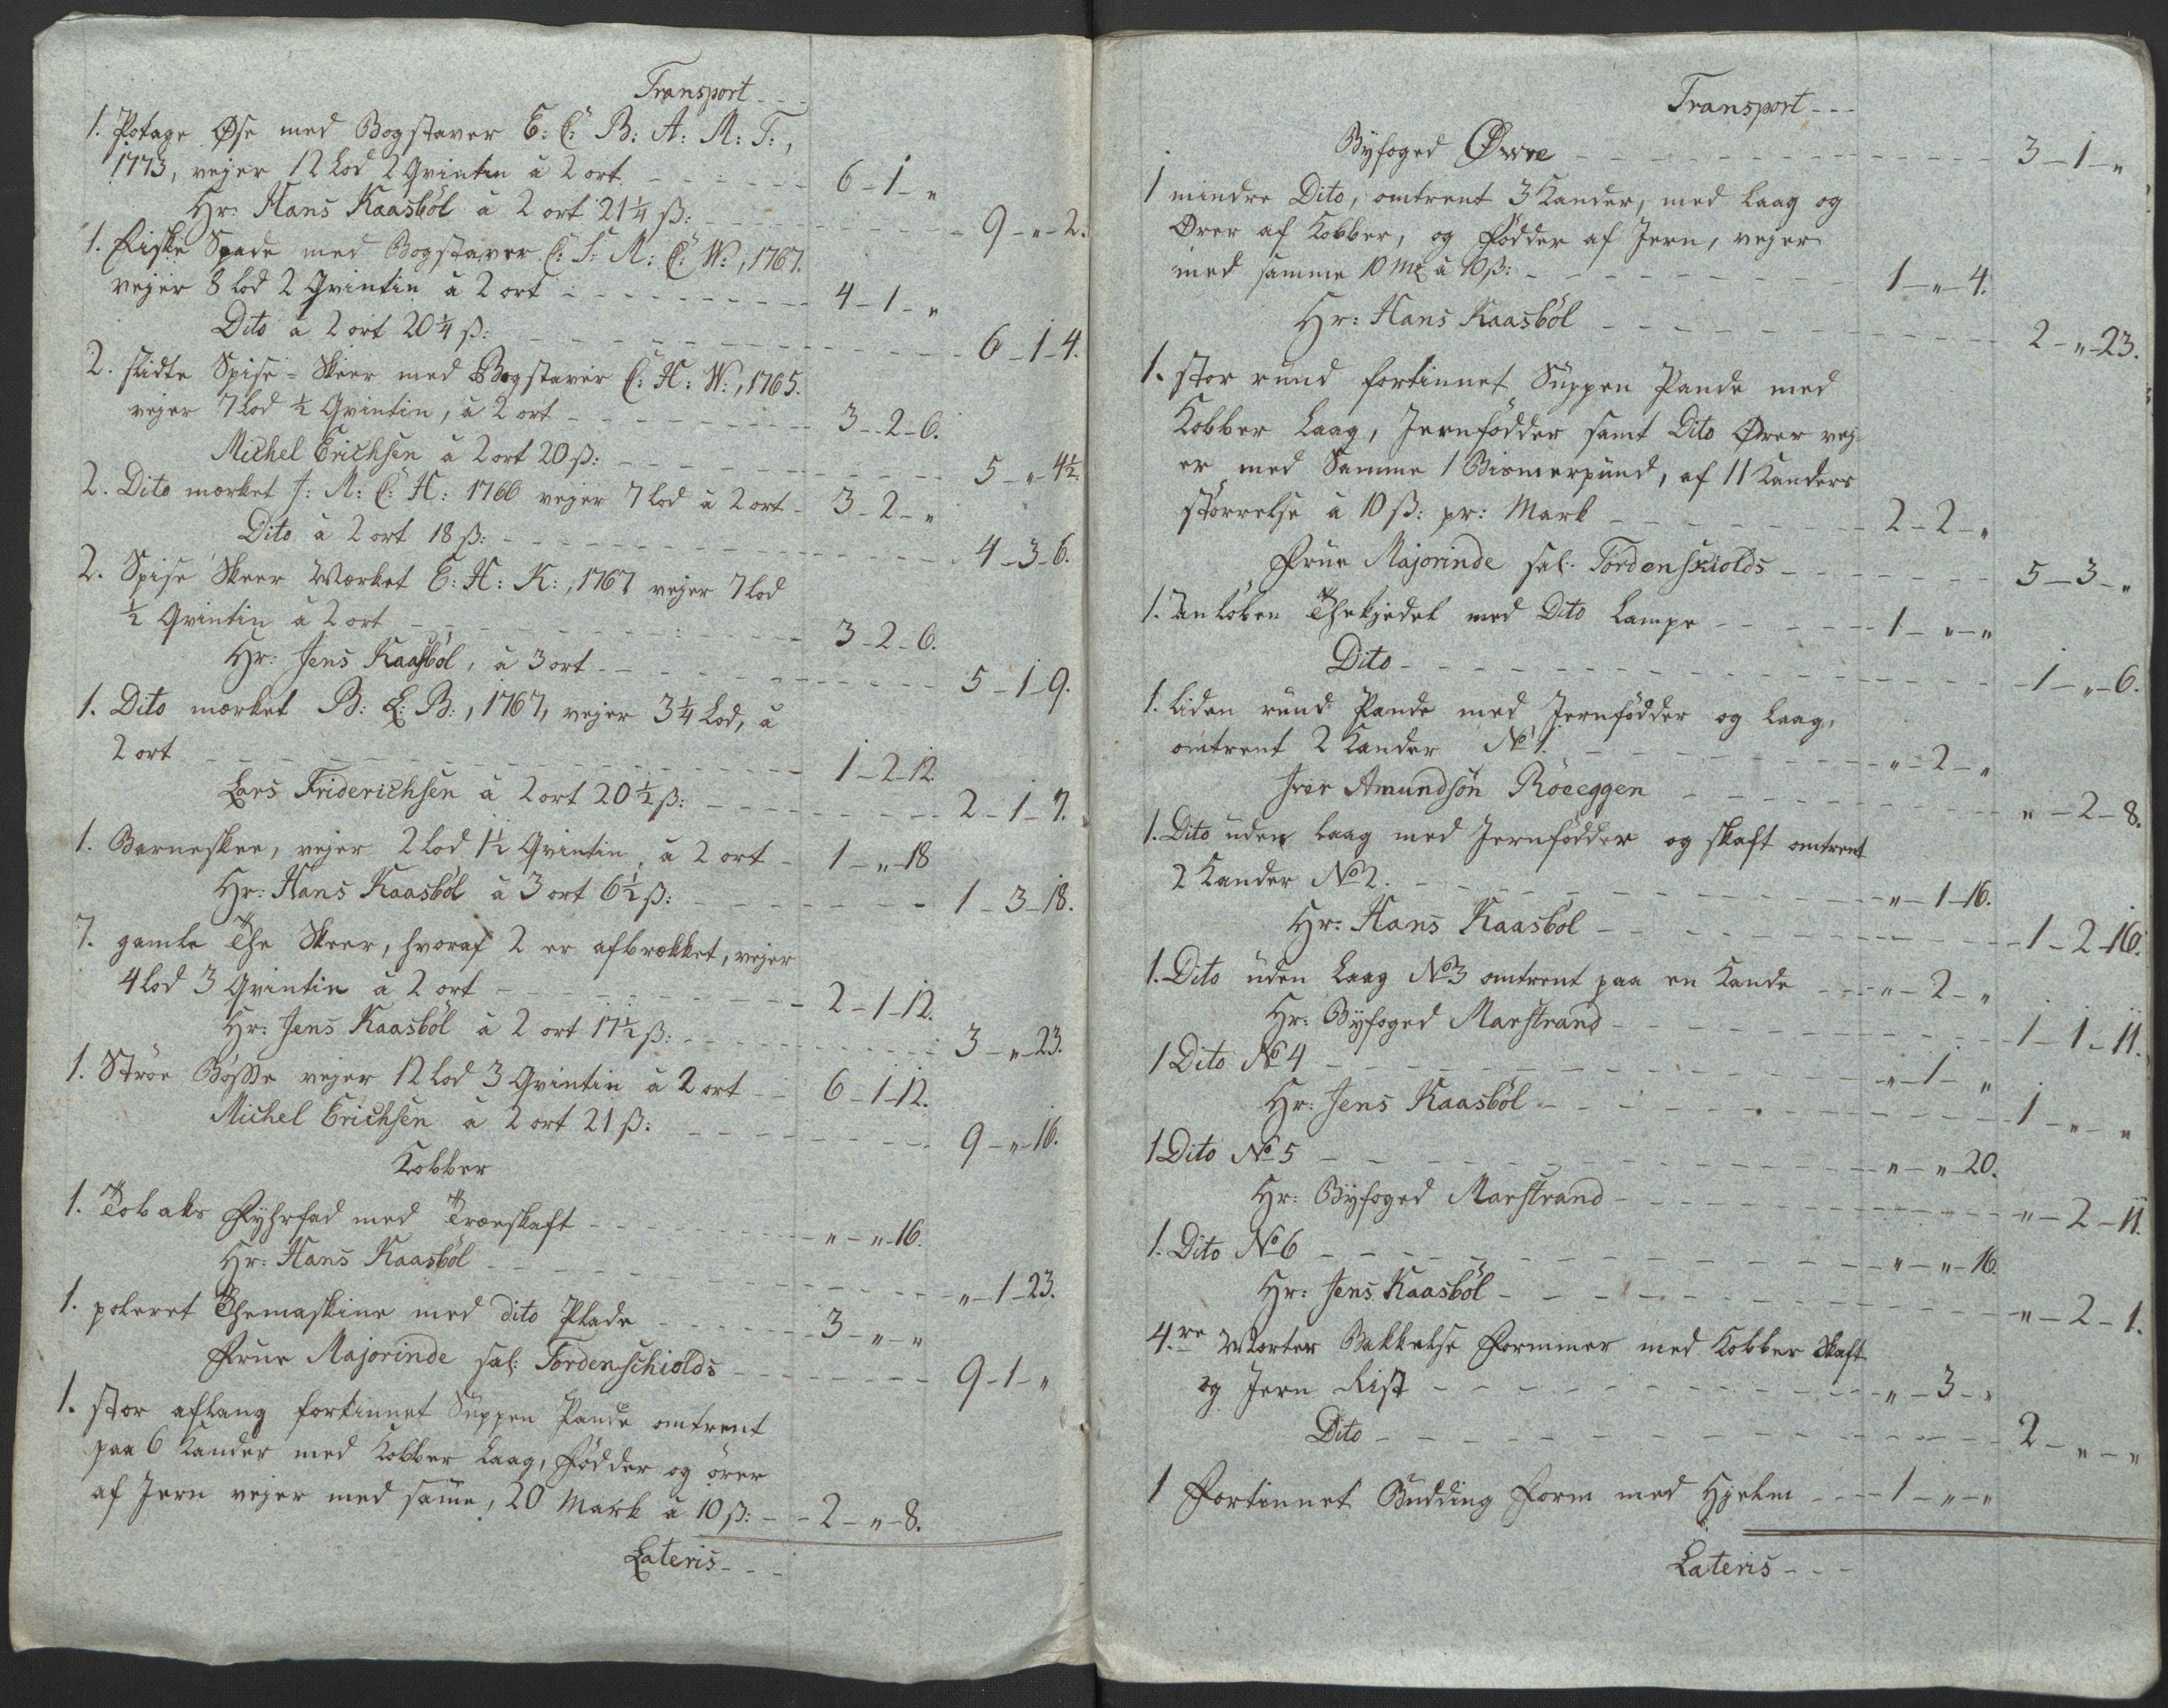 Transport
1. Potage Øse med Bogstaver E: C: B: A: M: T:,
1773, vejer 12 Lod 2 Qvintin à 2 ort 6 - 1 - "
Hr: Hans Kaasböl à 2 ort 21 1/4 ß: 9 - " - 2.
1. Fiske Spade med Bogstaver C: S: M: C: W:, 1767.
vejer 8 Lod 2 Qvintin à 2 ort 4 - 1 - "
Dito à 2 ort 20 1/4 ß: 6 - 1 - 4.
2. slidte Spise-Skeer med Bogstaver C: H: W:, 1765.
vejer 7 Lod 1/2 Qvintin, à 2 ort 3 - 2 - 6.
Michel Erichsen à 2 ort 20 ß: 5 - " - 4 1/2.
2. Dito mærket J: M: C: H: 1766 vejer 7 Lod à 2 ort 3 - 2 - "
Dito à 2 ort 18 ß: 4 - 3 - 6.
2. Spise Skeer Mærket E: H: K:, 1767 vejer 7 Lod
1/2 Qvintin à 2 ort 3 - 2 - 6.
Hr: Jens Kaasböl, à 3 ort 5 - 1 - 9.
1. Dito mærket B: L: B:, 1767, vejer 3 1/4 Lod, à
2 ort 1 - 2 - 12
Lars Friderichsen à 2 ort 20 1/2 ß: 2 - 1 - 7.
1. Barneskee, vejer 2 Lod 1 1/2 Qvintin, à 2 ort 1 - " - 18
Hr: Hans Kaasböl à 3 ort 6 1/2 ß: 1 - 3 - 18.
7. gamle The Skeer, hvoraf 2 er afbrækket, vejer
4 Lod 3 Qvintin à 2 ort 2 - 1 - 12.
Hr: Jens Kaasböl à 2 ort 17 1/2 ß: 3 - " - 23.
1. Ströe Bösse vejer 12 Lod 3 Qvintin à 2 ort 6 - 1 - 12.
Michel Erichsen à 2 ort 21 ß: 9 - " - 16.
Kobber
1. Tobaks Fyhrfad med Træeskaft " - " - 16.
Hr: Hans Kaasböl " - 1 - 23.
1. poleret Themaskine med dito Plade 3 - " - "
Frue Majorinde sal: Tordenschiolds 9 - 1 - "
1. stor aflang fortinnet Suppen Pande omtrent
paa 6 Kander med Kobber Laag, Födder og örer
af Jern vejer med samme, 20 Mark à 10 ß: 2 - " - 8.
Lateris
Transport
Byfoged Øwre 3 - 1 - "
1 mindre Dito, omtrent 3 Kander, med Laag og
Ører af Kobber, og Födder af Jern, vejer
med samme 10 Mk à 10 ß: 1 - " - 4.
Hr: Hans Kaasböl 2 - " - 23.
1. stor rund fortinnet Suppen Pande med
Kobber Laag, Jernfödder samt Dito Ører vej-
er med Samme 1 Bismerpund, af 11 Kanders
störrelse à 10 ß: pr: Mark 2 - 2 - "
Frue Majorinde sal: Tordenskiolds 5 - 3 - "
1. Anlöben Thekjedel med Dito Lampe 1 - " - "
Dito 1 - " - 6.
1. liden rund Pande med Jernfödder og Laag,
omtrent 2 Kander No 1. " - 2 - "
Iver Amundsön Röeeggen " - 2 - 8.
1. Dito uden Laag med Jernfödder og skaft omtrent
2 Kander No 2. " - 1 - 16.
Hr: Hans Kaasböl 1 - 2 - 16.
1. Dito uden Laag No 3 omtrent paa en Kande " - 2 - "
Hr: Byfoged Marstrand 1 - 1 - 11.
1 Dito No 4 " - 1 - "
Hr: Jens Kaasböl 1 - " - "
1 Dito No 5 " - " 20.
Hr: Byfoged Marstrand " - 2 - 11.
1. Dito No 6 " - " - 16.
Hr: Jens Kaasböl " - 2 - 1.
4.re Morter Bakkelse Formmer med Kobber Skaft
og Jern Rist " - 3 - "
Dito 2 - " - "
1 Fortinnet Budding Form med Hjelm 1 - " - "
Lateris